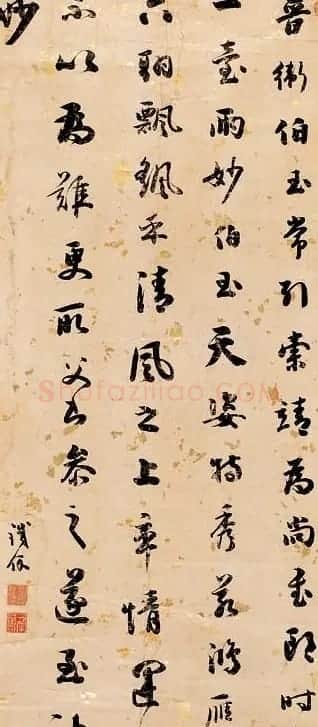 晉衛伯玉常引索靖為尚書郎時
一臺兩妙伯玉天姿特秀若鴻雁
六翮飄飖乎清風之上率情運
不以為難更取父書參之遂至
妙
Shufaziliao.COM